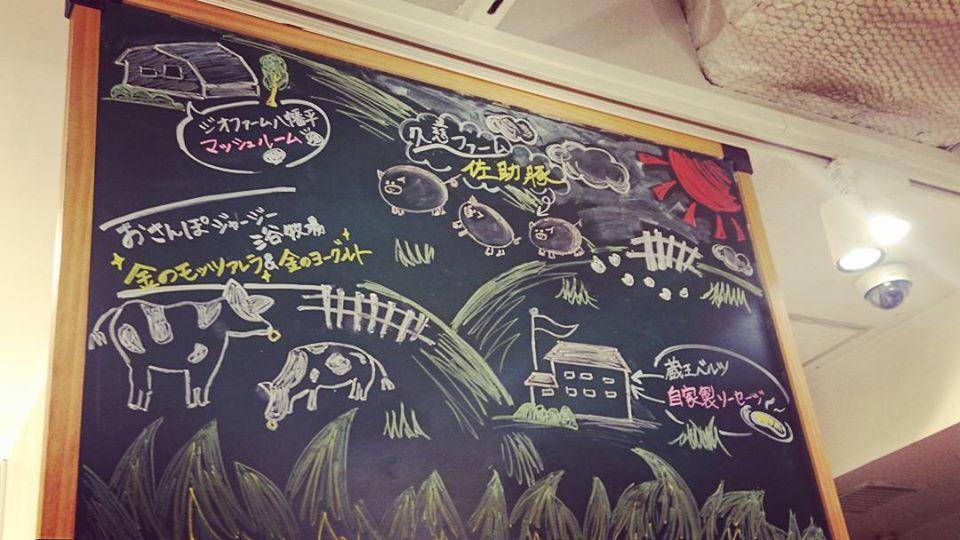 ジオファーム八幡平
マッシュルーム
久慈ファーム
佐助豚
おさんぽジャージー
三谷牧場
金のモッツァレラ&金のヨーグルト
蔵王ベルツ
自家製ソーセージ